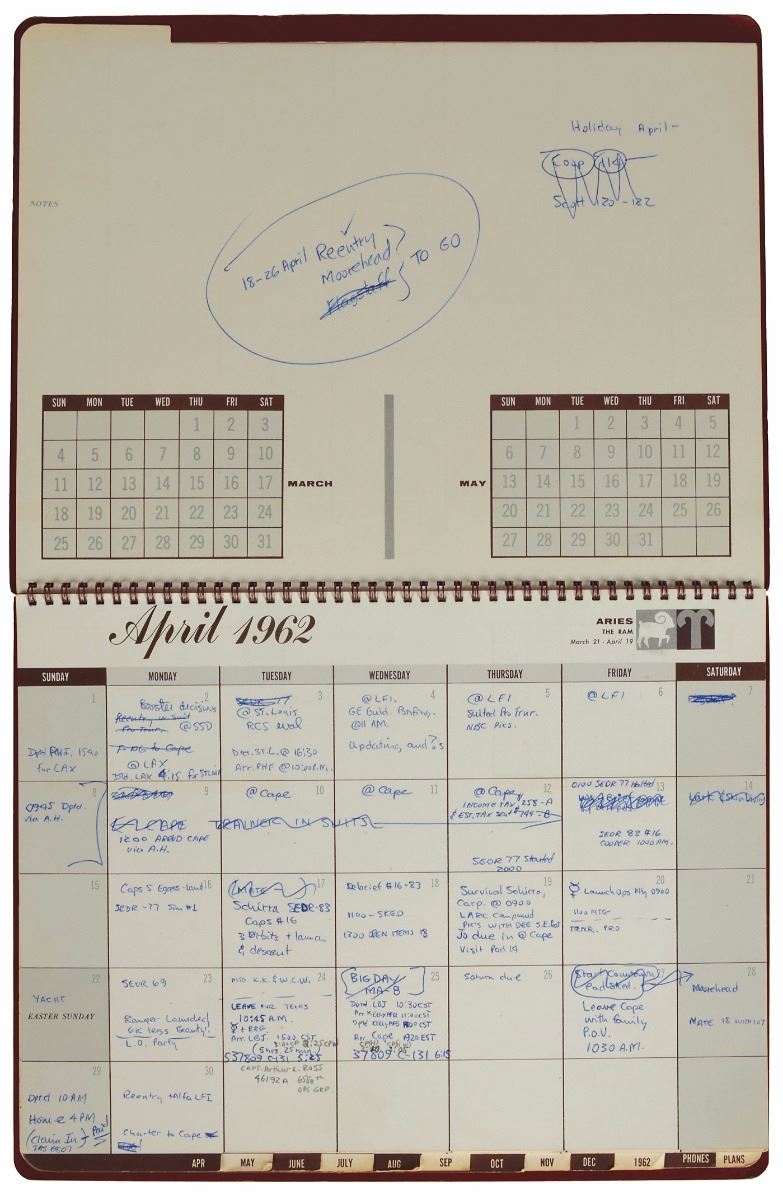 Holiday April-
Coop 114
Scott 120-122
NOTES
18-26 April Reentry
Moorehead
Flagstaff
TO GO
SUN MON TUE WED THU FRI SAT
1 2 3
4 5 6 7 8 9 10
11 12 13 14 15 16 17
18 19 20 21 22 23 24
25 26 27 28 29 30 31
MARCH
SUN MON TUE WED THU FRI SAT
1 2 3 4 5
6 7 8 9 10 11 12
13 14 15 16 17 18 19
20 21 22 23 24 25 26
27 28 29 30 31
MAY
April 1962
ARIES
THE RAM
March 21 - April 19
SUNDAY MONDAY TUESDAY WEDNESDAY THURSDAY FRIDAY SATURDAY
1
for LAX
2
Booster decisions
Reentry w suit
@ SSD
to Cape
@ LAX
LAX 4:15 for St Louis
3
SEDR 77
@ St. Louis
RCS eval
ST.L. @ 16:30
Arr. PHF @ 10:00 P.M.
4
@ LFI.
GE Guid. Briefing.
@ 11 AM.
Updating and ?s
5
@ LFI
Suited Pro Trnr.
NBC Pics.
6
@ LFI
7
8
0945 Dptd.
via A.H.
9
@ CAPE TRAINER IN SUITS
1200 ARRVD CAPE
via A.H.
10
@ Cape
11
@ Cape
12
@ Cape
INCOME TAX $258-A
EST. TAX sent $799-B
SEDR 77 Started
2000
13
0100 SEDR 77 Halted
SEDR 83 #16
COOPER 1000 AM.
14
15
16
Caps 5 Egress-land
SEDR-77 Sim #1
17
Schirra SEDR-83
Caps #16
3 Orbits + launch
& descent
18
Debrief #16-83
1100-SKED
1300 OPEN ITEMS 18
19
Survival Schirra,
Carp. @ 0900
LARC Compound
PICS WITH DEE S.E. Gat
Jo due in @ Cape
Visit Pad 14
20
Launch Ops Mtg 0900
1100 MTG
TRNR. PRO
21
22
YACHT
EASTER SUNDAY
23
SEDR 69
Ranger Launched
6K lbs Beauty!
L.O. Party
24
MTG K.K. & W.C.W.
LEAVE FOR TEXAS
10:45 A.M.
Arr. LBJ. 1500 CST
(5 hrs. 25 min)
537809 C-131 5:25
CAPT. Arthur L. ROSS
46192A 6550th
OPS GRP.
25
BIG DAY
MA-8
Dptd LBJ 10:30 CST
Arr Cape 1920 EST
37809 C-131 6:15
26
Saturn due
27
Start Countdown
Pad Sked.
Leave Cape
with family
P.O.V.
1030 A.M.
28
Moorehead
29
Dptd 10 AM
Home 4 PM
(Claim In) Paid
30
Reentry + Alfa LFI
Charter to Cape
APR MAY JUNE JULY AUG SEP OCT NOV DEC 1962 PHONES PLANS